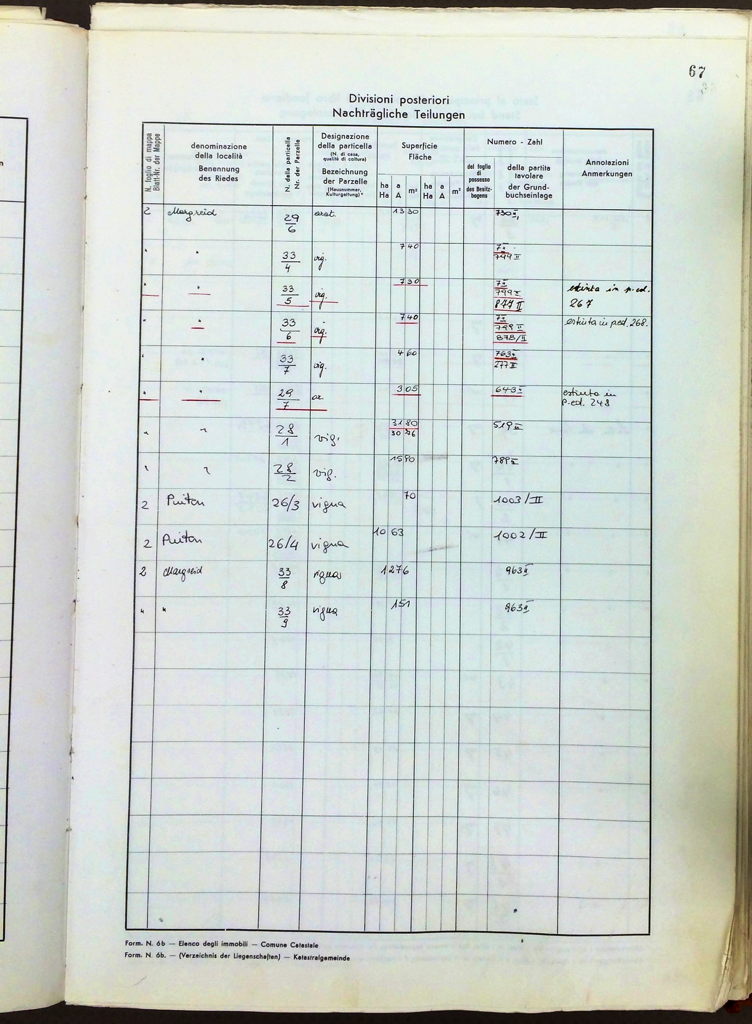 67
Divisioni posteriori
Nachträgliche Teilungen
N. foglio di mappa
Blatt-Nr. der Mappe
denominazione
della località
Benennung
des Riedes
N. della particella
Nr. der Parzelle
Designazione
della particella
(N. di casa,
qualità di coltura)
Bezeichnung
der Parzelle
(Hausnummer,
Kulturgattung)
Superficie
Fläche
ha a m² ha a m²
Ha A Ha A
Numero - Zahl
del foglio
di
possesso
des Besitz-
bogens
della partita
tavolare
der Grund-
buchseinlage
Annotazioni
Anmerkungen
2 Margreid 29/6 arat. 13 30 730 II
" " 33/4 vig. 7 40 744 II
" " 33/5 vig. 7 30 877 II estinta in p.ed. 267
" " 33/6 vig. 7 40 878/II estinta in p.ed. 268.
" " 33/7 vig. 4 60 277 II
" " 29/7 ar. 3 05 643 II estinta in p.ed. 248
" " 28/1 vig. 31 80 519 II
30 76
" " 28/2 vig. 15 90 789 II
2 Puiten 26/3 vigna 70 1003/II
2 Puiten 26/4 vigna 10 63 1002/II
2 Margreid 33/8 vigna 12 76 963 II
" " 33/9 vigna 1 51 963 II
Form. N. 6b — Elenco degli immobili — Comune Catastale
Form. N. 6b. — (Verzeichnis der Liegenschaften) — Katastralgemeinde